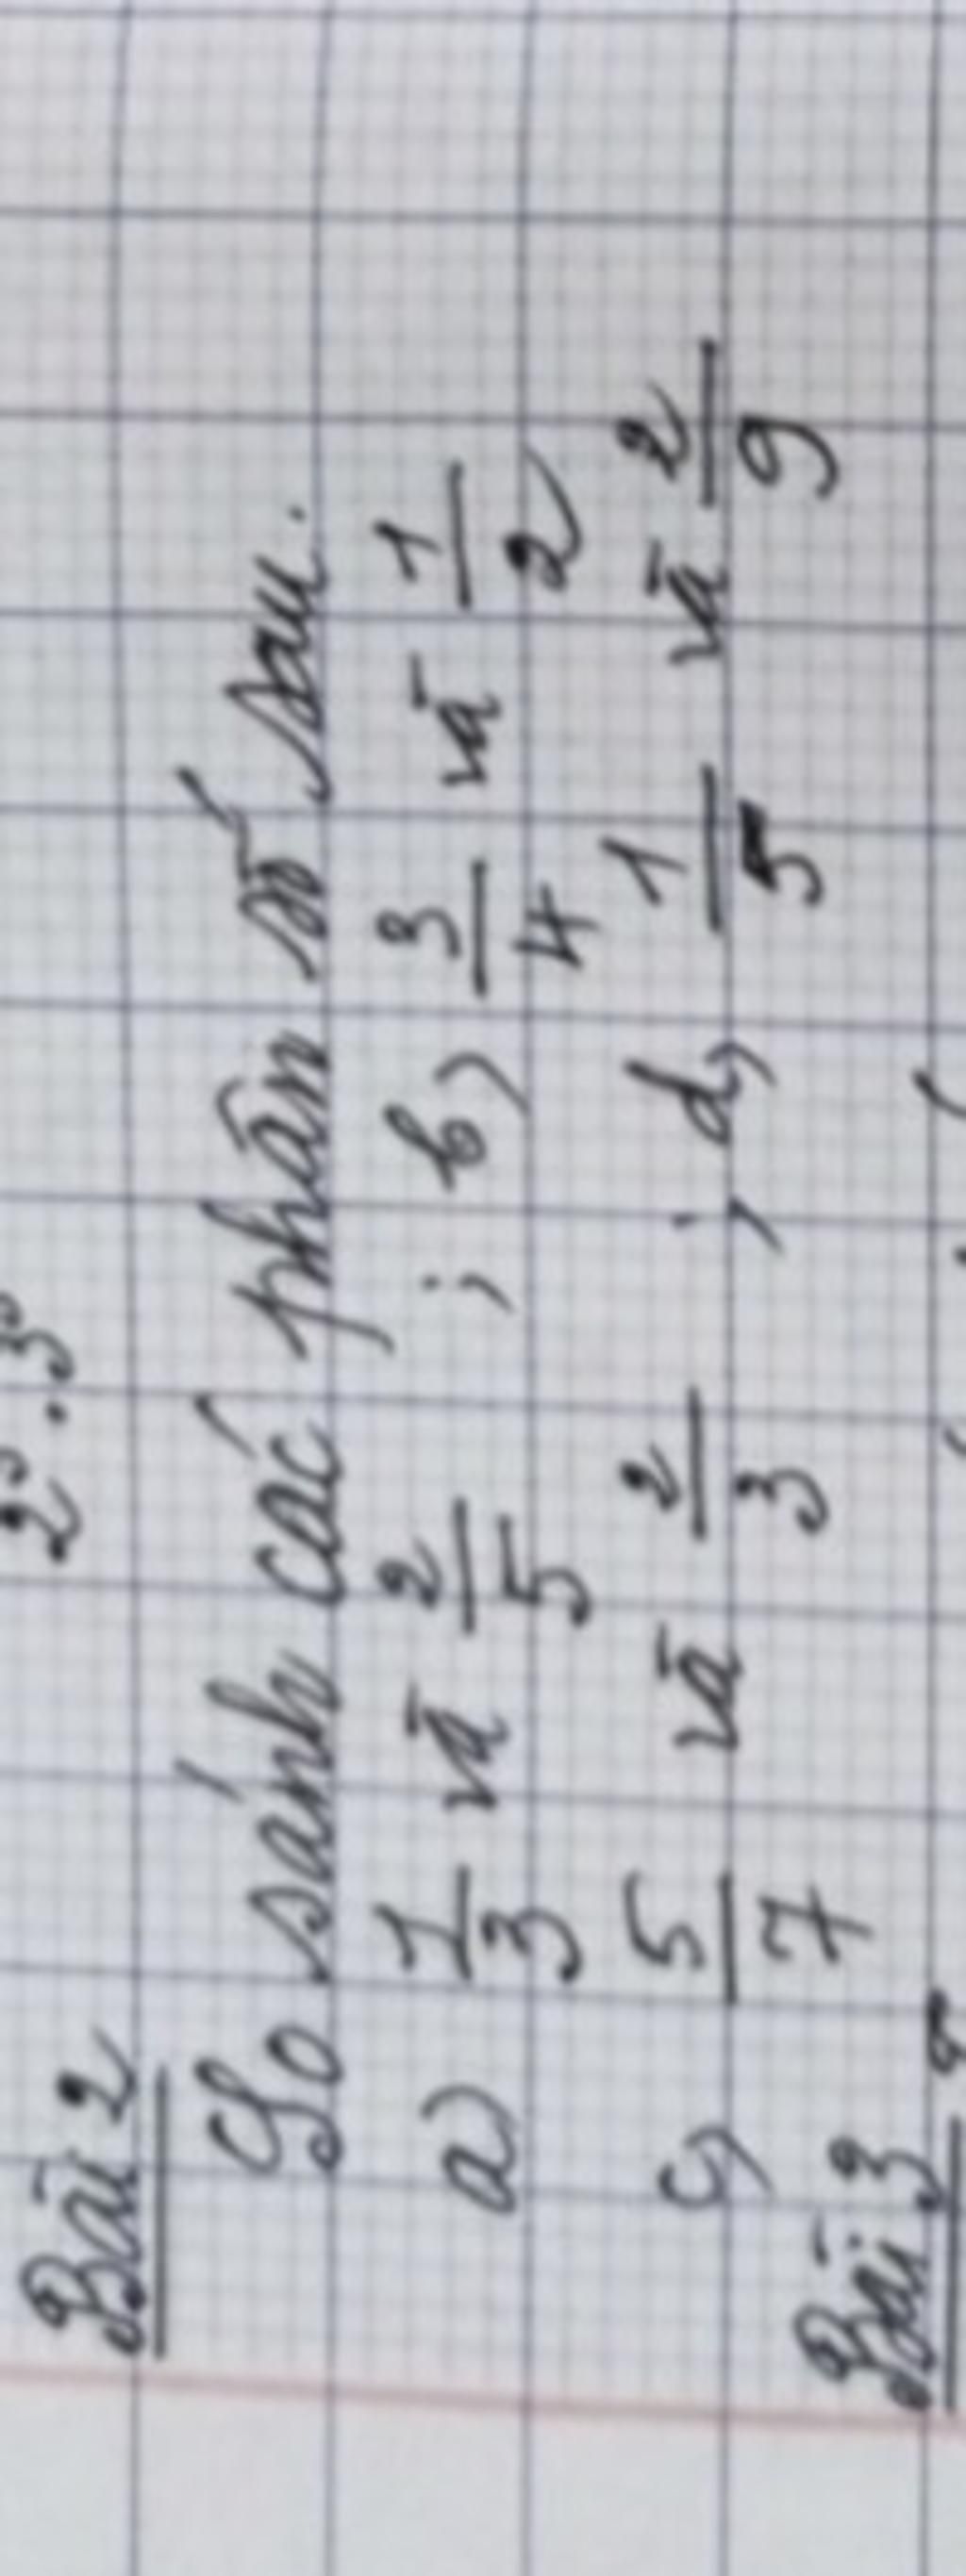 2³.3
Bài 2
So sánh các phân số sau.
a) 1/3 và 2/5 ; b) 3/4 và 1/2
c, 5/7 và 2/3 ; d, 1/5 và 2/9
Bài 3